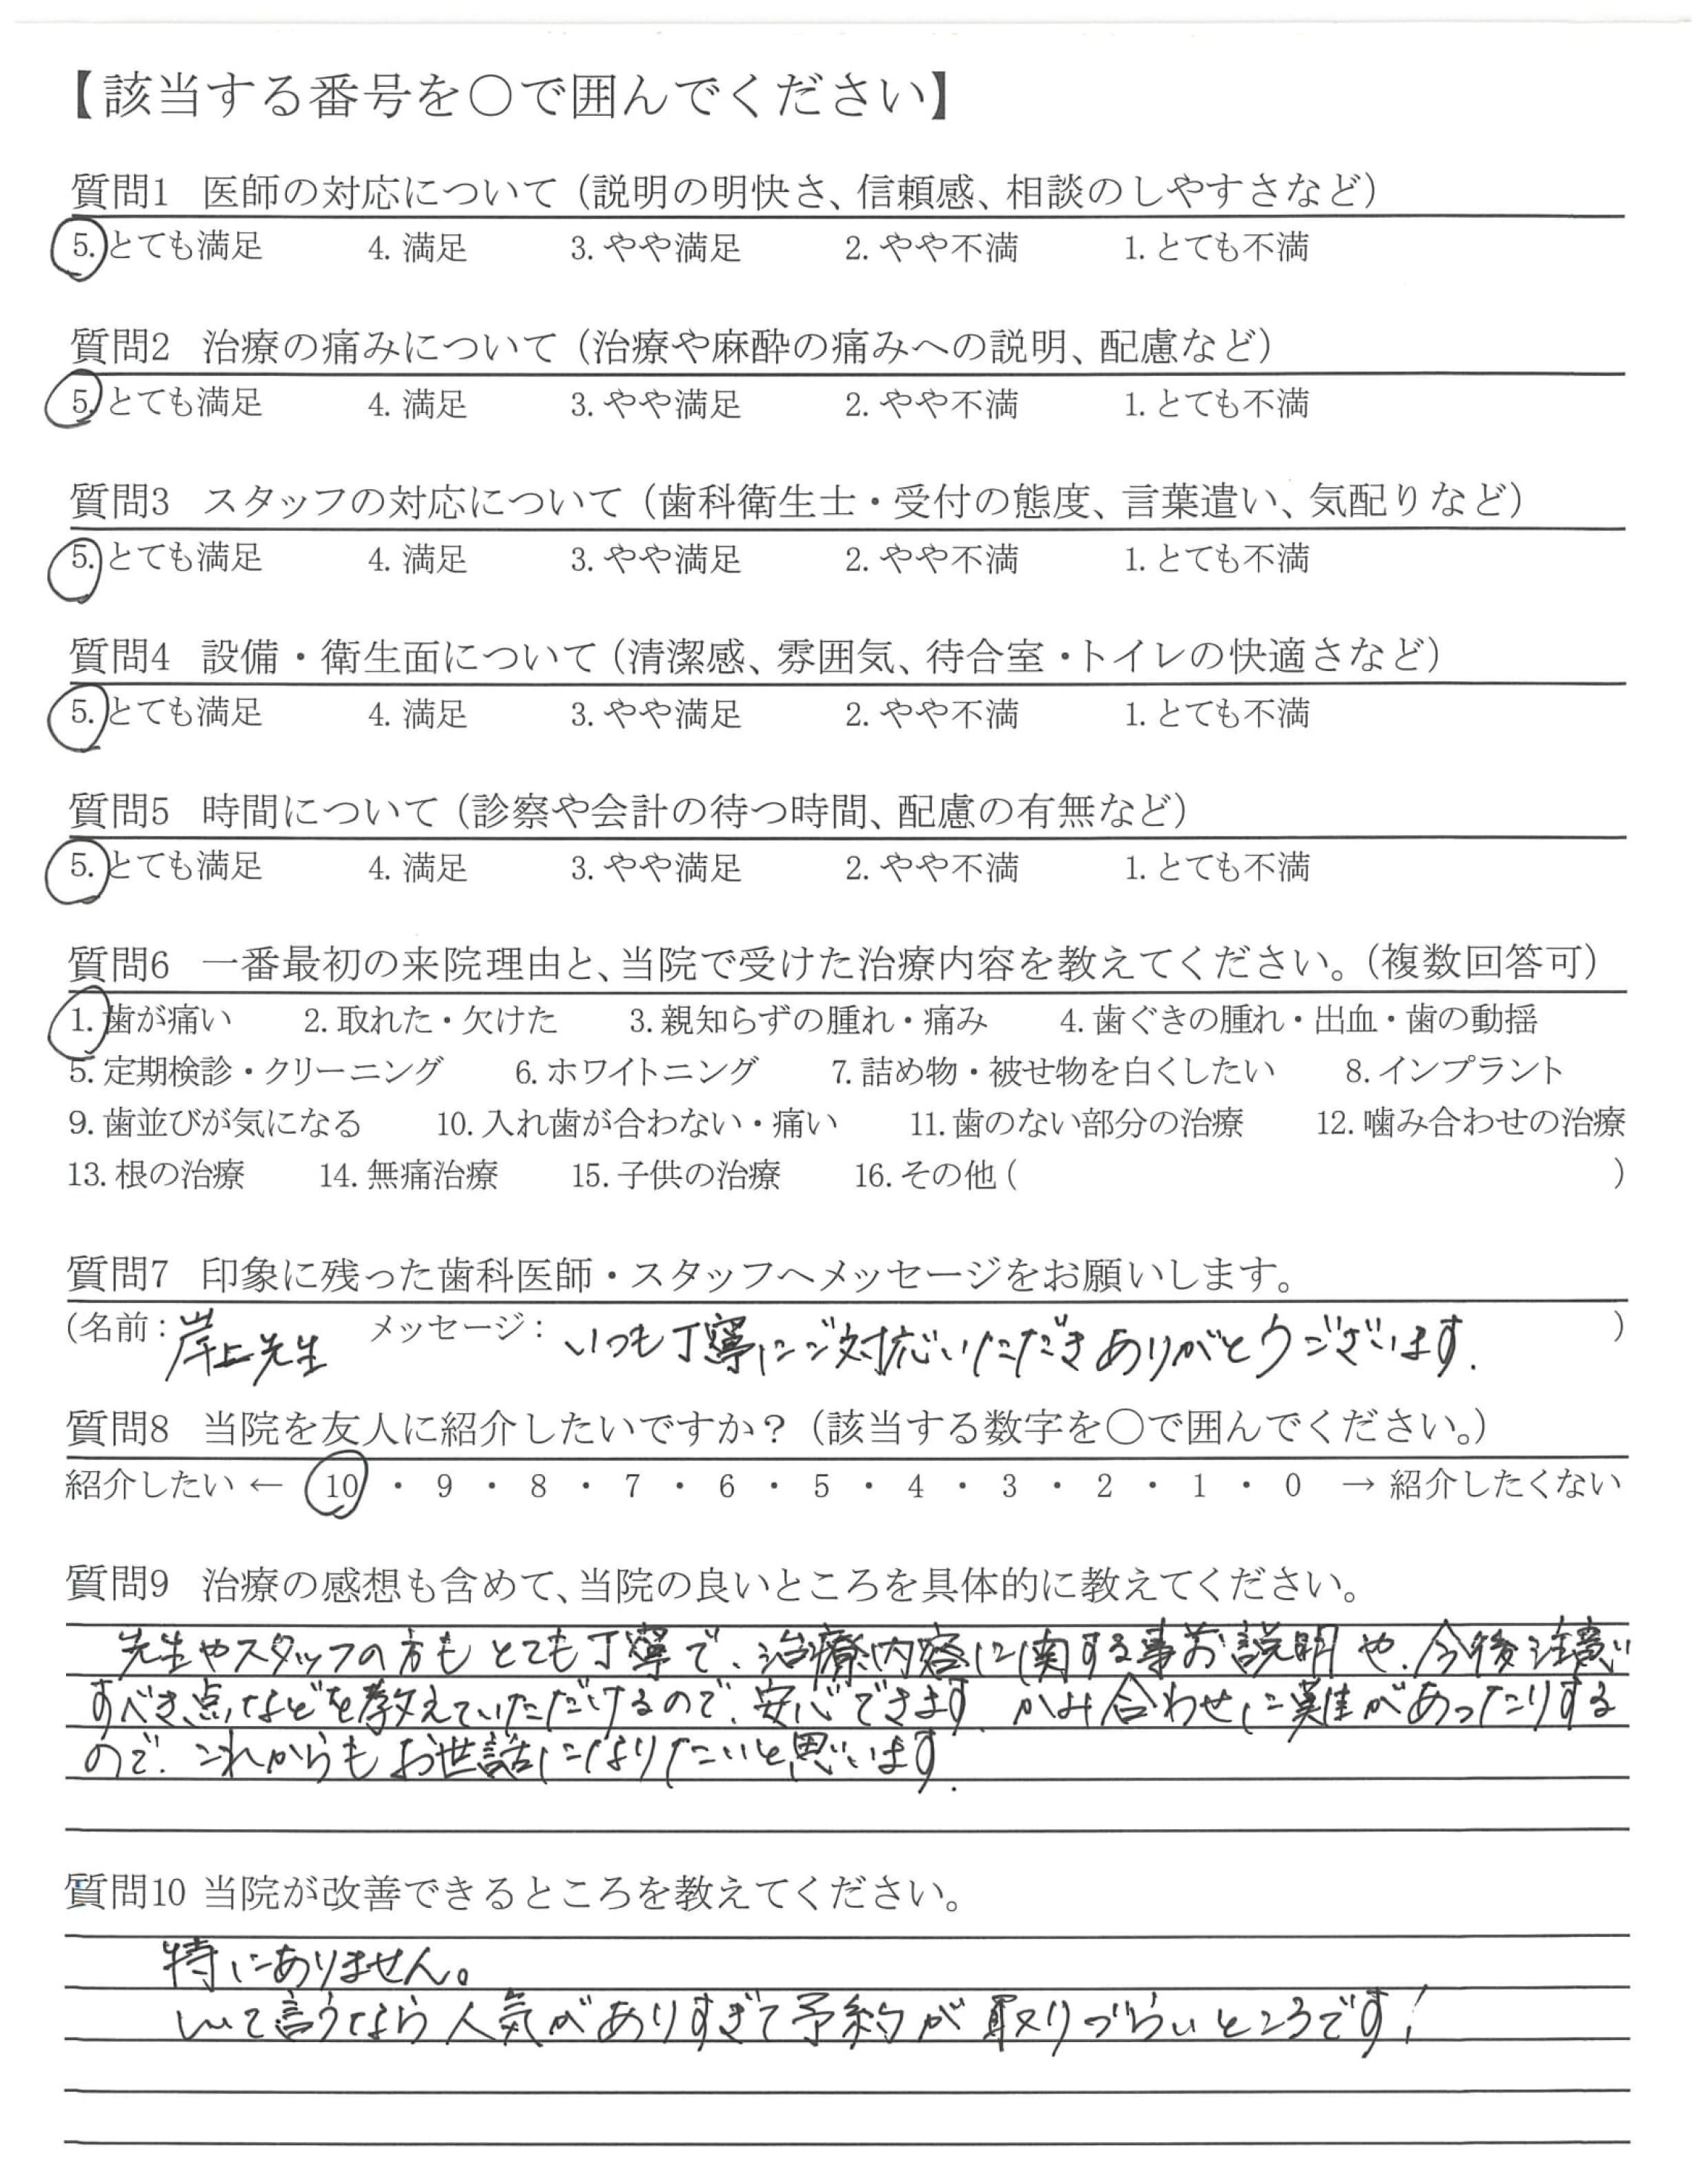 【該当する番号を〇で囲んでください】
質問1 医師の対応について（説明の明快さ、信頼感、相談のしやすさなど）
5.とても満足 4.満足 3.やや満足 2.やや不満 1.とても不満
質問2 治療の痛みについて（治療や麻酔の痛みへの説明、配慮など）
5.とても満足 4.満足 3.やや満足 2.やや不満 1.とても不満
質問3 スタッフの対応について（歯科衛生士・受付の態度、言葉遣い、気配りなど）
5.とても満足 4.満足 3.やや満足 2.やや不満 1.とても不満
質問4 設備・衛生面について（清潔感、雰囲気、待合室・トイレの快適さなど）
5.とても満足 4.満足 3.やや満足 2.やや不満 1.とても不満
質問5 時間について（診察や会計の待つ時間、配慮の有無など）
5.とても満足 4.満足 3.やや満足 2.やや不満 1.とても不満
質問6 一番最初の来院理由と、当院で受けた治療内容を教えてください。（複数回答可）
1.歯が痛い 2.取れた・欠けた 3.親知らずの腫れ・痛み 4.歯ぐきの腫れ・出血・歯の動揺
5.定期検診・クリーニング 6.ホワイトニング 7.詰め物・被せ物を白くしたい 8.インプラント
9.歯並びが気になる 10.入れ歯が合わない・痛い 11.歯のない部分の治療 12.噛み合わせの治療
13.根の治療 14.無痛治療 15.子供の治療 16.その他（ ）
質問7 印象に残った歯科医師・スタッフへメッセージをお願いします。
（名前：岸上先生 メッセージ：いつも丁寧にご対応いただきありがとうございます. ）
質問8 当院を友人に紹介したいですか？（該当する数字を〇で囲んでください。）
紹介したい ← 10 ・ 9 ・ 8 ・ 7 ・ 6 ・ 5 ・ 4 ・ 3 ・ 2 ・ 1 ・ 0 → 紹介したくない
質問9 治療の感想も含めて、当院の良いところを具体的に教えてください。
先生やスタッフの方もとても丁寧で、治療内容に関する事前説明や、今後注意
すべき点などを教えていただけるので、安心できます. かみ合わせに難があったりする
ので、これからもお世話になりたいと思います.
質問10 当院が改善できるところを教えてください。
特にありません。
しいて言うなら人気がありすぎて予約が取りづらいところです!